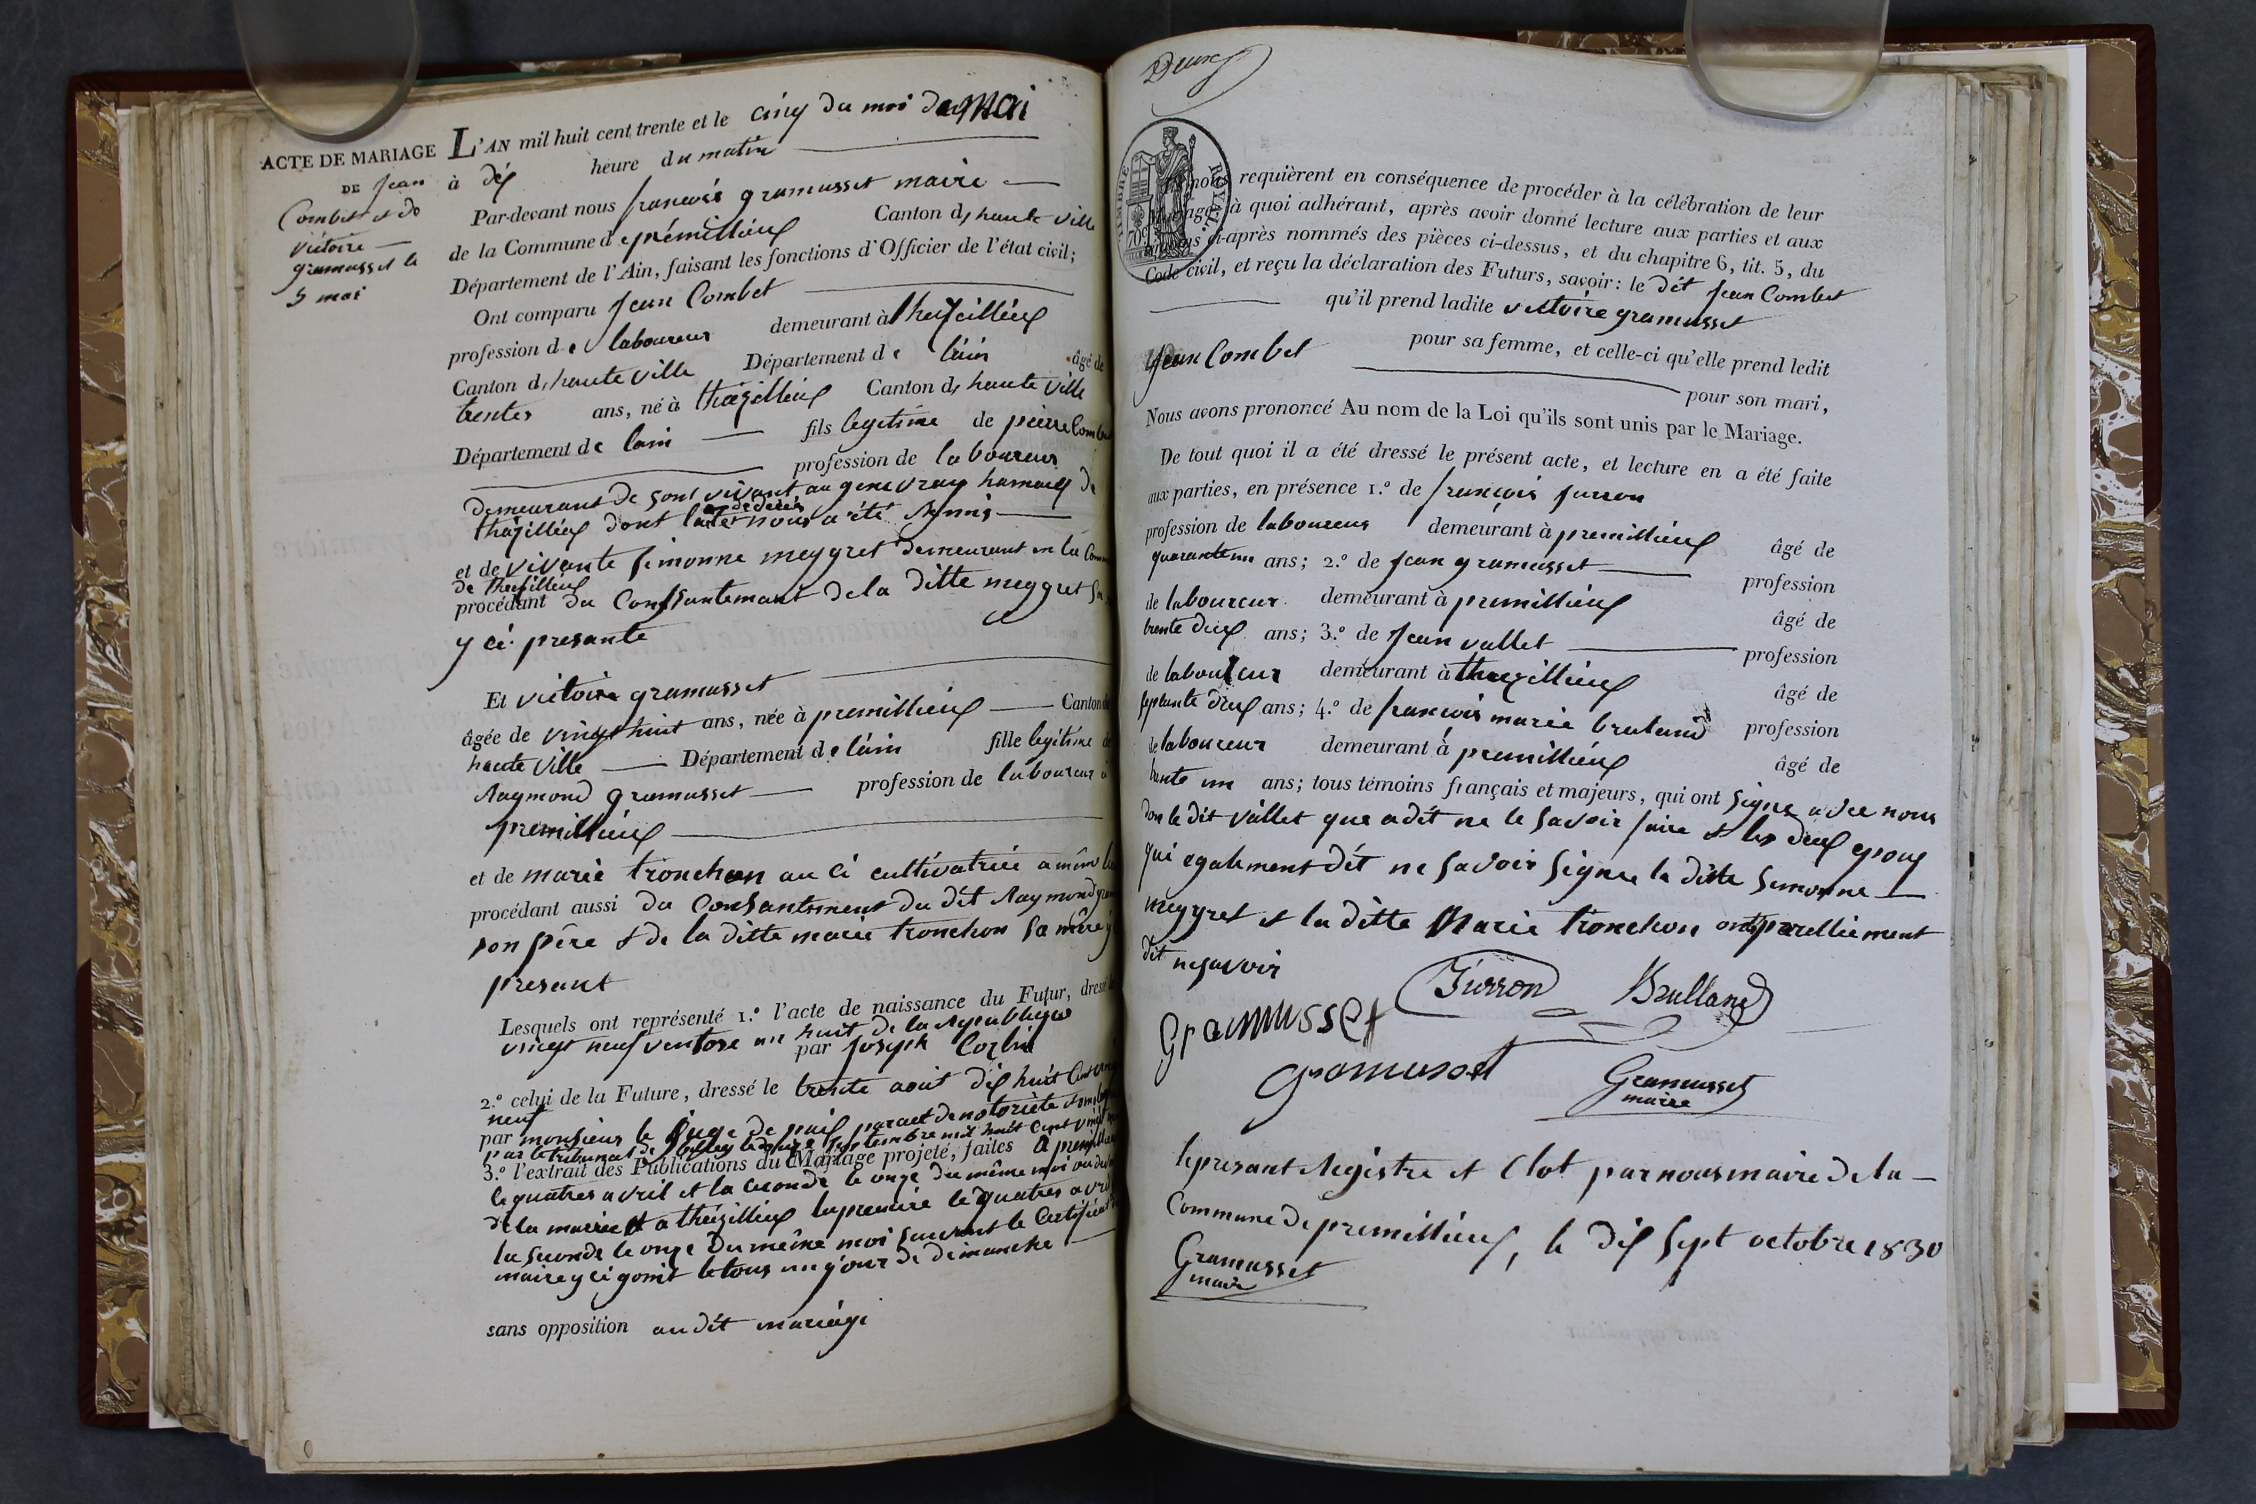 ACTE DE MARIAGE
DE Jean
Combet et de
victoire
gramusset le
5 mai
L'AN mil huit cent trente et le cinq du moi de Mai
à dix heure du matin
Par-devant nous francois gramusset maire
de la Commune de prémillieux Canton de haute ville
Département de l'Ain, faisant les fonctions d'Officier de l'état civil;
Ont comparu Jean Combet
profession de laboureur demeurant à thezillieux
Canton de haute ville Département de l'ain âgé de
trentes ans, né à thézillieux Canton de haute ville
Département de lain fils legitime de pierre Combet
profession de laboureur
demeurant de sont vivant au genevray hamaux de
thézillieux dont lacte de décès nous a été remis
et de vivante simonne meygret demeurant en la
de thezillieux
procédant du Conssantemant de la ditte meygret
y ci presante
Et victoire gramusset
âgée de vingt huit ans, née à premillieux Canton
haute ville Département de l'ain fille legitime
Raymond gramusset profession de laboureur
premillieux
et de marie tronchon au ci cultivatrice a même
procédant aussi du Consantement du dit Raymond
son père et de la ditte marie tronchon sa mère
presant
Lesquels ont représenté 1.º l'acte de naissance du Futur, dressé
vingt neuf ventose an huit de la republique
par Joseph
2.º celui de la Future, dressé le trente aout dix huit cent
neuf
par monsieur le Juge de paix par act de notoriété
par le tribunal de belley le septembre mil huit cent vingt
3.º l'extrait des Publications du Mariage projeté, faites a
le quatres avril et la seconde le onze du même moi
de la mairie et a thézillieux la premiere le quatres avril
la seconde le onze du même moi suivant le Certificat
maire y ci goint le tous un jour de dimanche
sans opposition au dit mariage
Deux
TIMBRE ROYAL
70c
nous requièrent en conséquence de procéder à la célébration de leur
Mariage, à quoi adhérant, après avoir donné lecture aux parties et aux
témoins ci-après nommés des pièces ci-dessus, et du chapitre 6, tit. 5, du
Code civil, et reçu la déclaration des Futurs, savoir: le dit Jean Combet
qu'il prend ladite victoire gramusset
pour sa femme, et celle-ci qu'elle prend ledit
Jean Combet
pour son mari,
Nous avons prononcé Au nom de la Loi qu'ils sont unis par le Mariage.
De tout quoi il a été dressé le présent acte, et lecture en a été faite
aux parties, en présence 1.º de françois furron
profession de laboureur demeurant à premillieux âgé de
quarante un ans; 2.º de Jean gramusset profession
de laboureur demeurant à premillieux âgé de
trente deux ans; 3.º de Jean vallet profession
de laboureur demeurant à thezillieux âgé de
septante deux ans; 4.º de françois marie bruland profession
de laboureur demeurant à premillieux âgé de
trente un ans; tous témoins français et majeurs, qui ont signe avec nous
don le dit vallet que a dit ne le savoir faire et les deux epoux
qui egalement dit ne savoir signer la ditte simonne
meygret et la ditte Marie tronchon ont parelliement
dit ne savoir
Furron Brulland
Gramusset
gramuset Gramusset
maire
le presant Registre et Clot par nous maire de la
Commune de premillieux, le dix sept octobre 1830
Gramusset
maire